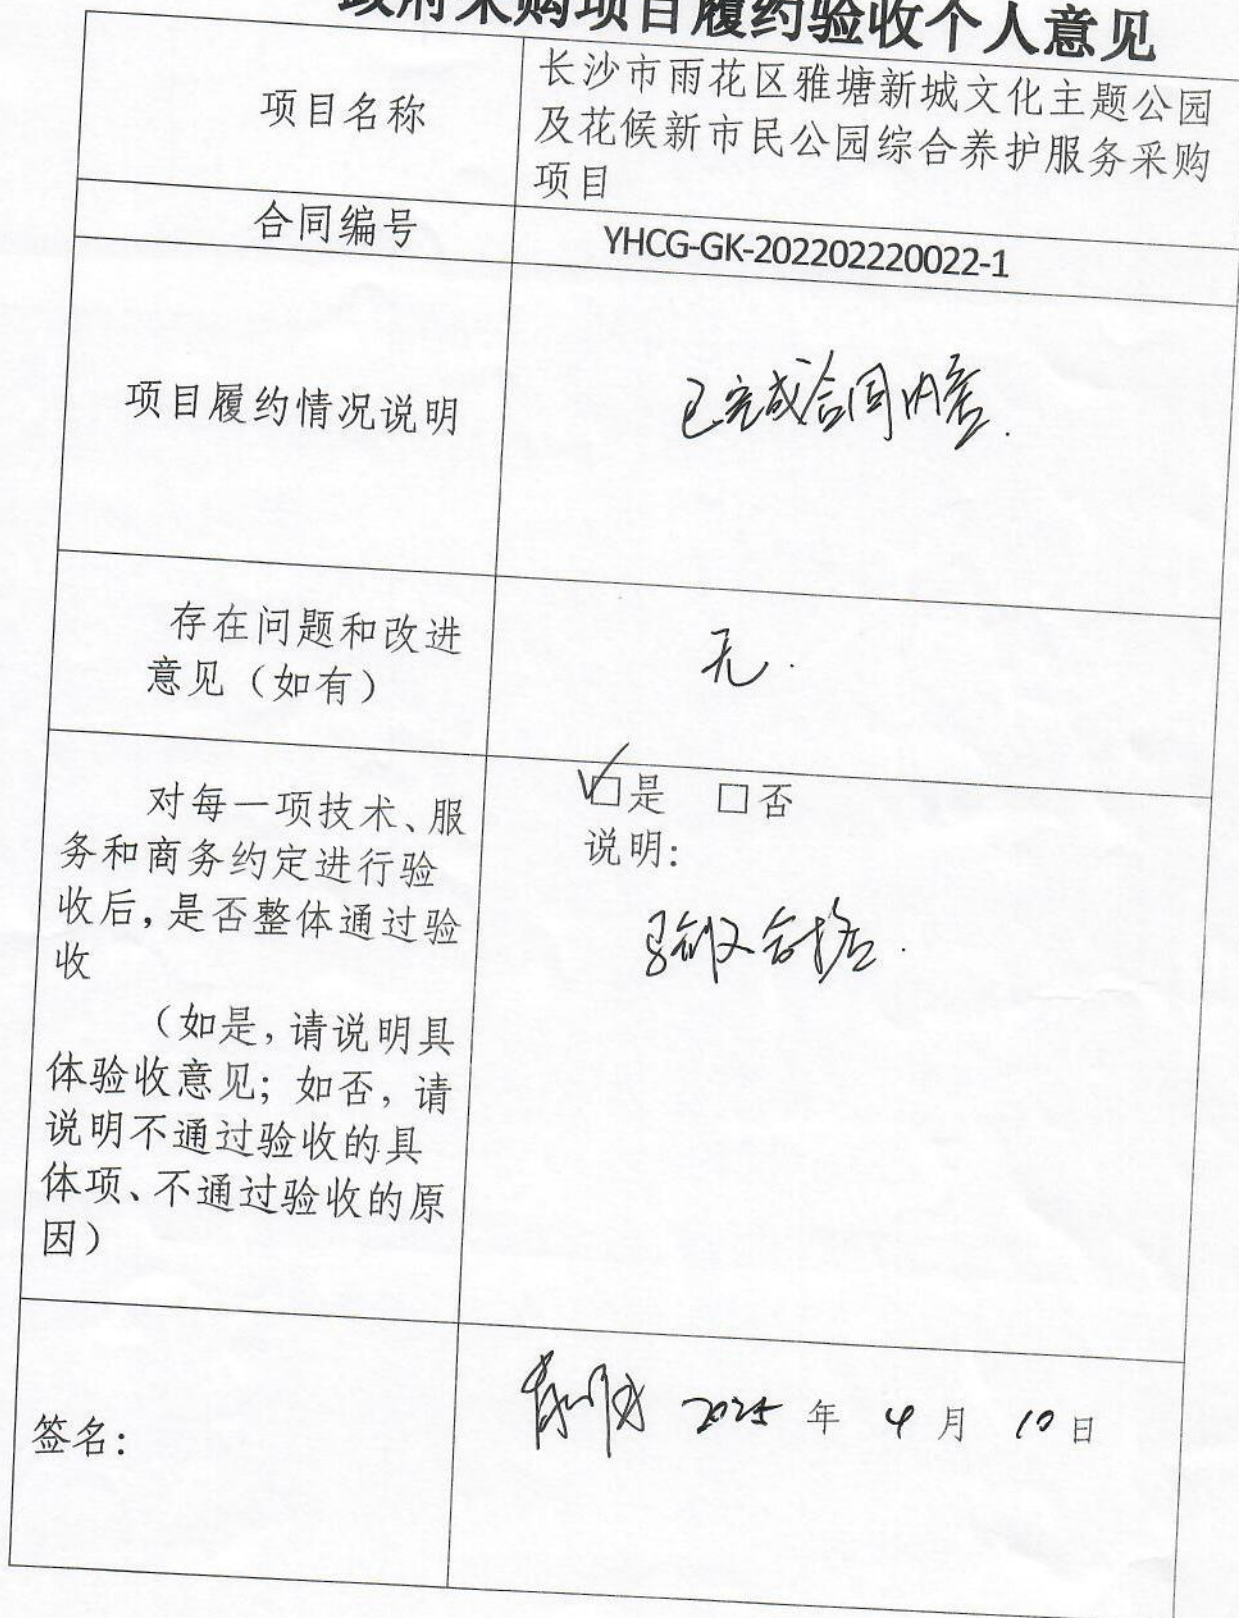 政府采购项目履约验收个人意见
项目名称
长沙市雨花区雅塘新城文化主题公园
及花候新市民公园综合养护服务采购
项目
合同编号
YHCG-GK-202202220022-1
项目履约情况说明
已完成合同内容.
存在问题和改进
意见（如有）
无.
对每一项技术、服
务和商务约定进行验
收后，是否整体通过验
收
（如是，请说明具
体验收意见；如否，请
说明不通过验收的具
体项、不通过验收的原
因）
☑是 □否
说明：
验收合格.
签名：
2025年4月10日